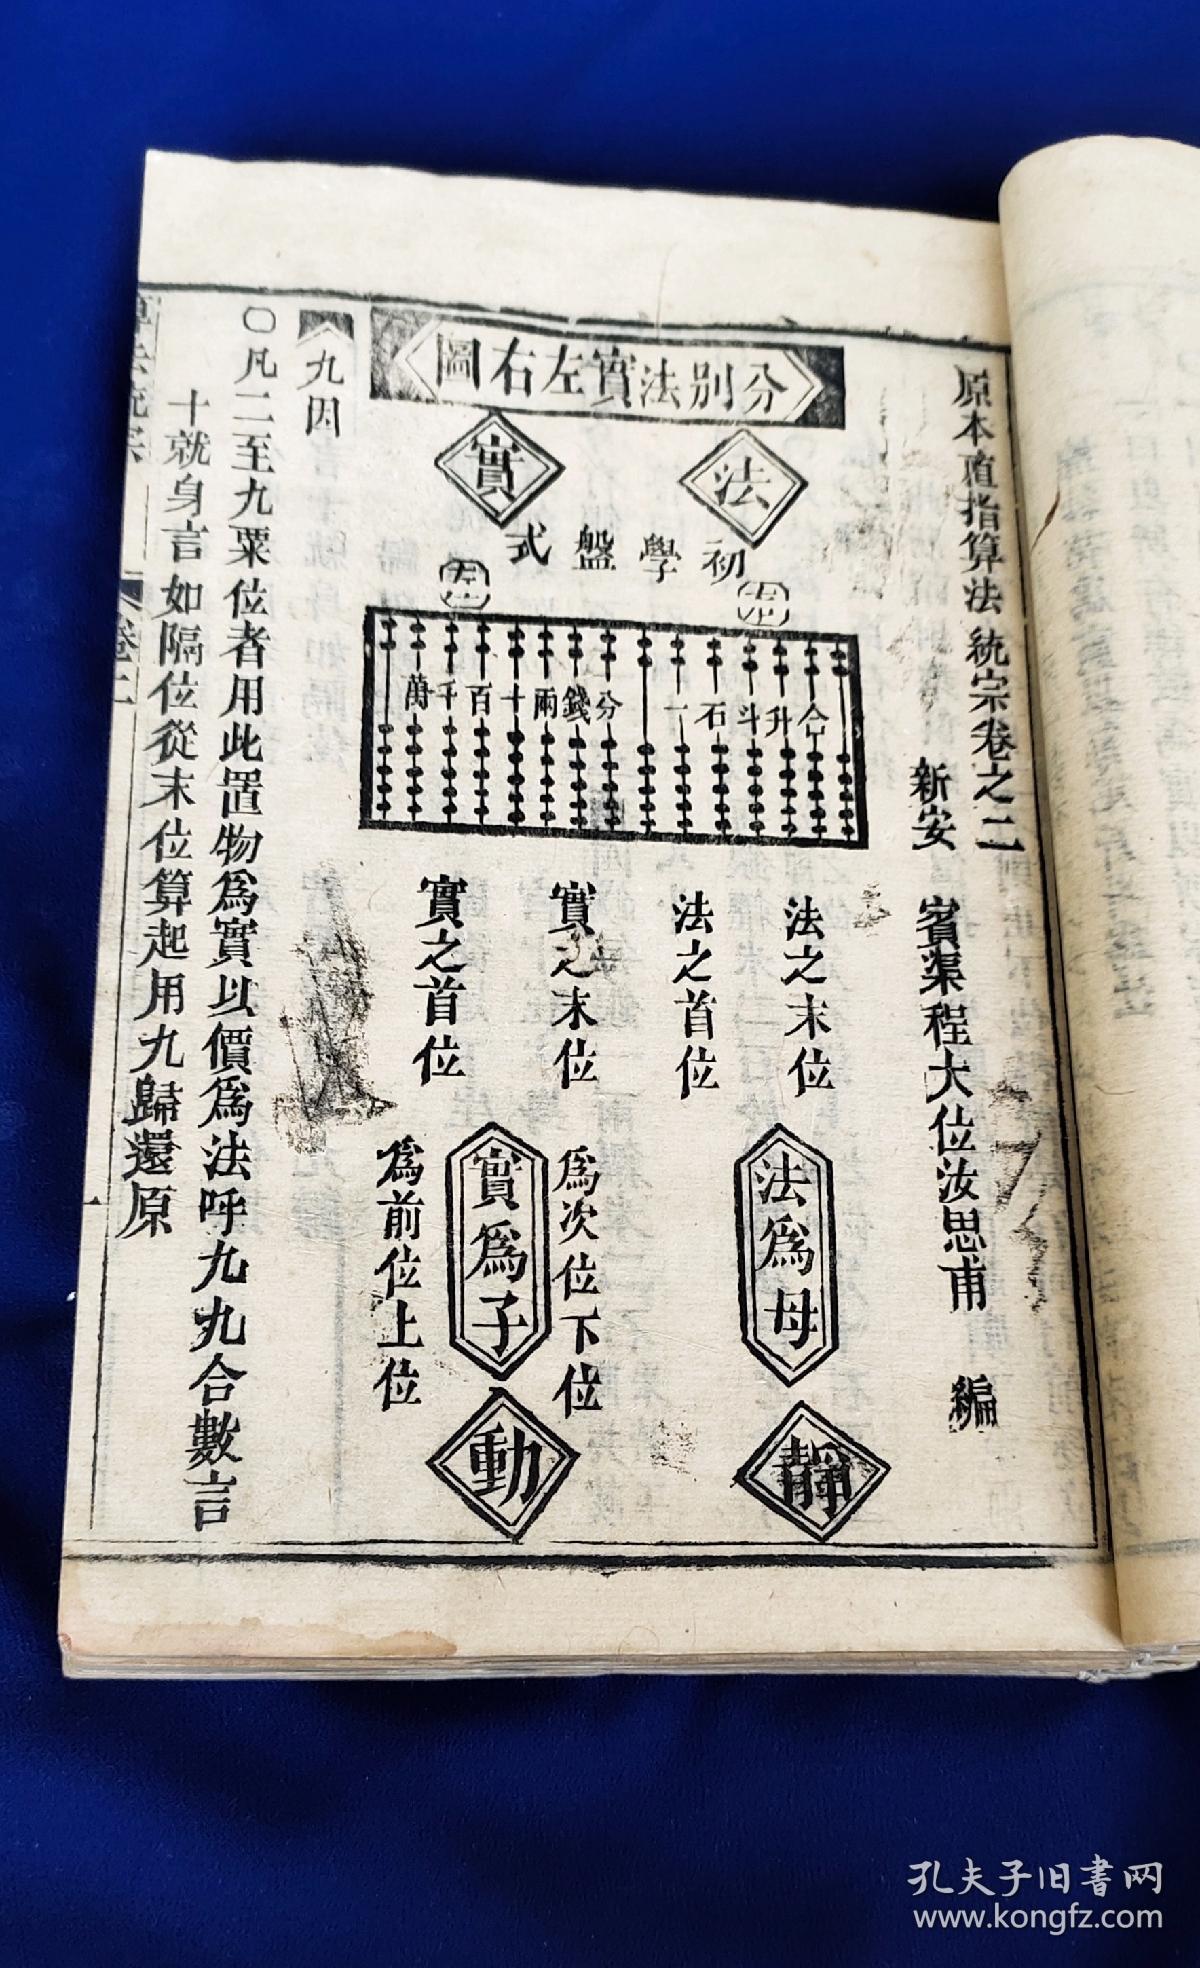 原本直指算法統宗卷之二
新安 賓渠程大位汝思甫 編
分別法實左右圖
法
實
初學盤式
右
左
合
升
斗
石
一
分
錢
兩
十
百
千
萬
法之末位
法之首位
實之末位
實之首位
法為母
為次位下位
實為子
為前位上位
靜
動
九因
〇凡二至九粟位者用此置物為實以價為法呼九九合數言
十就身言如隔位從末位算起用九歸還原
算法統宗
卷二
一
孔夫子旧书网
www.kongfz.com